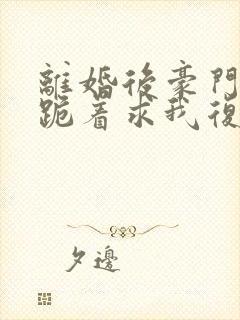 離婚後豪門
跪着求我復
夕邊